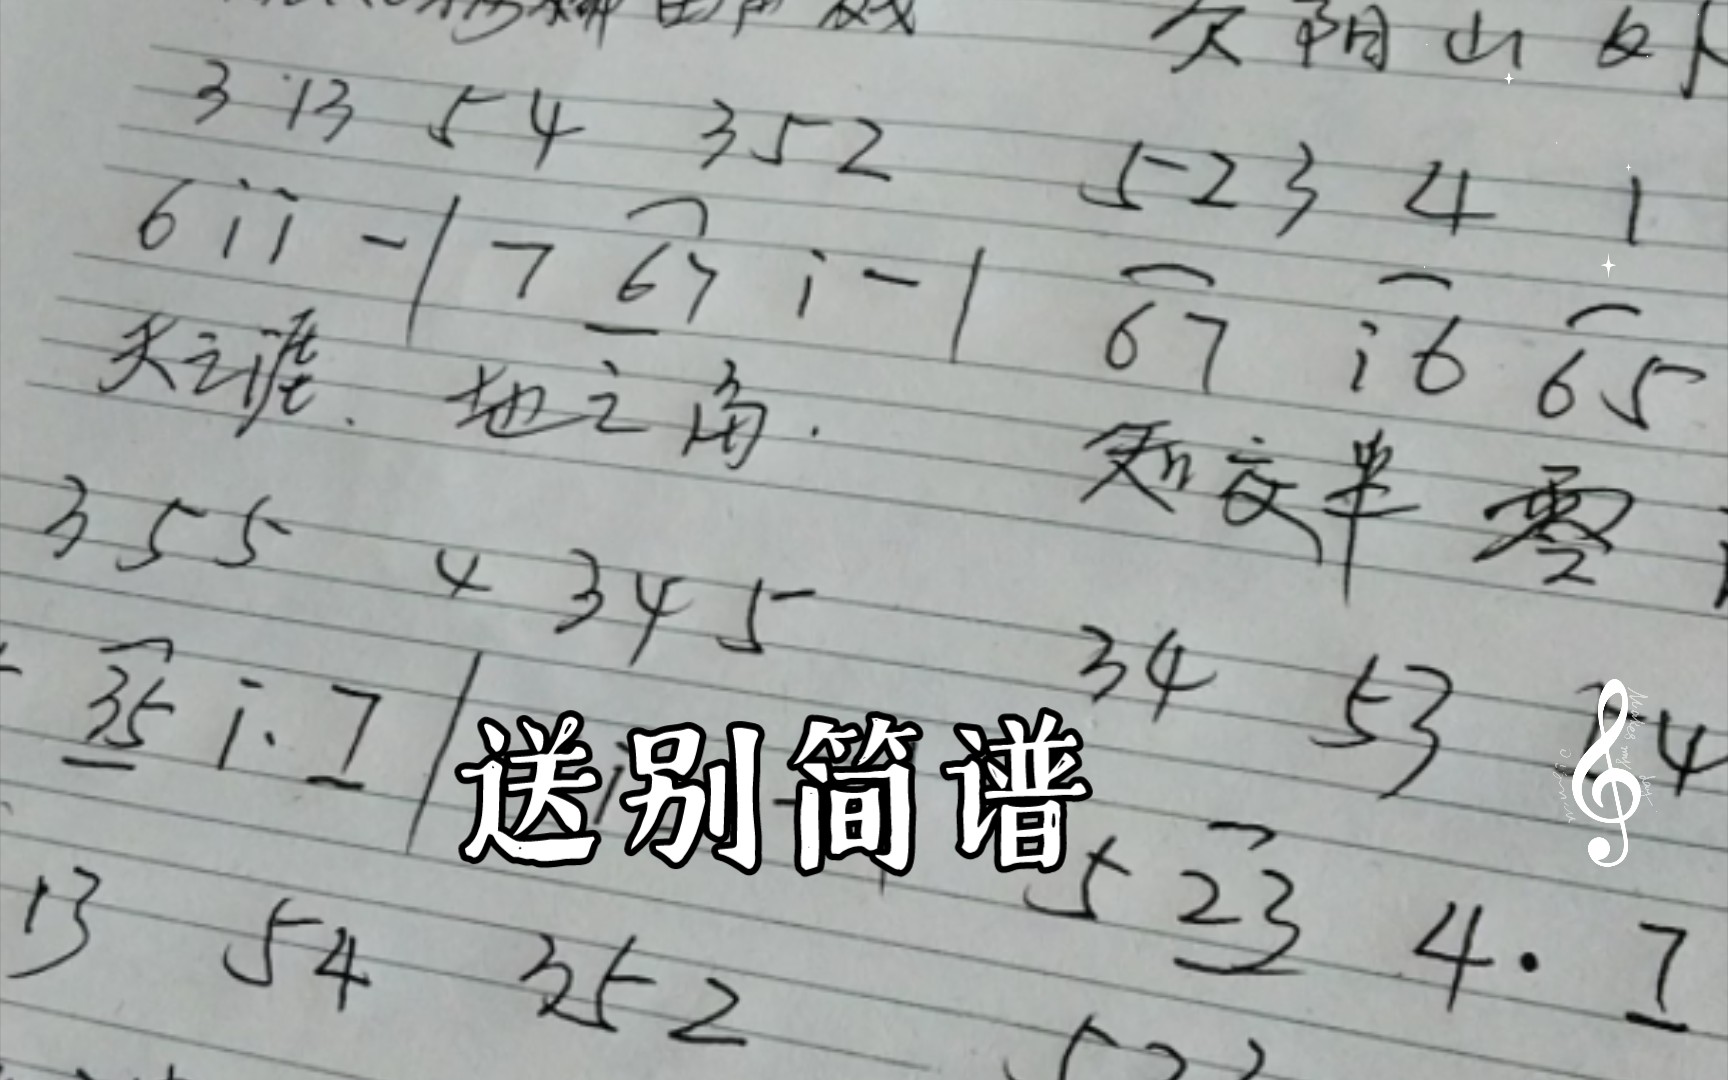 夕阳山外
3 13 54 352 523 4 1
6 i i - | 7 67 i - | 67 i6 65
天之涯. 地之角. 知交半零
355 4345 34 53 34
35 i. 7 |
送别简谱
5 23 4. 7
13 54 352 523